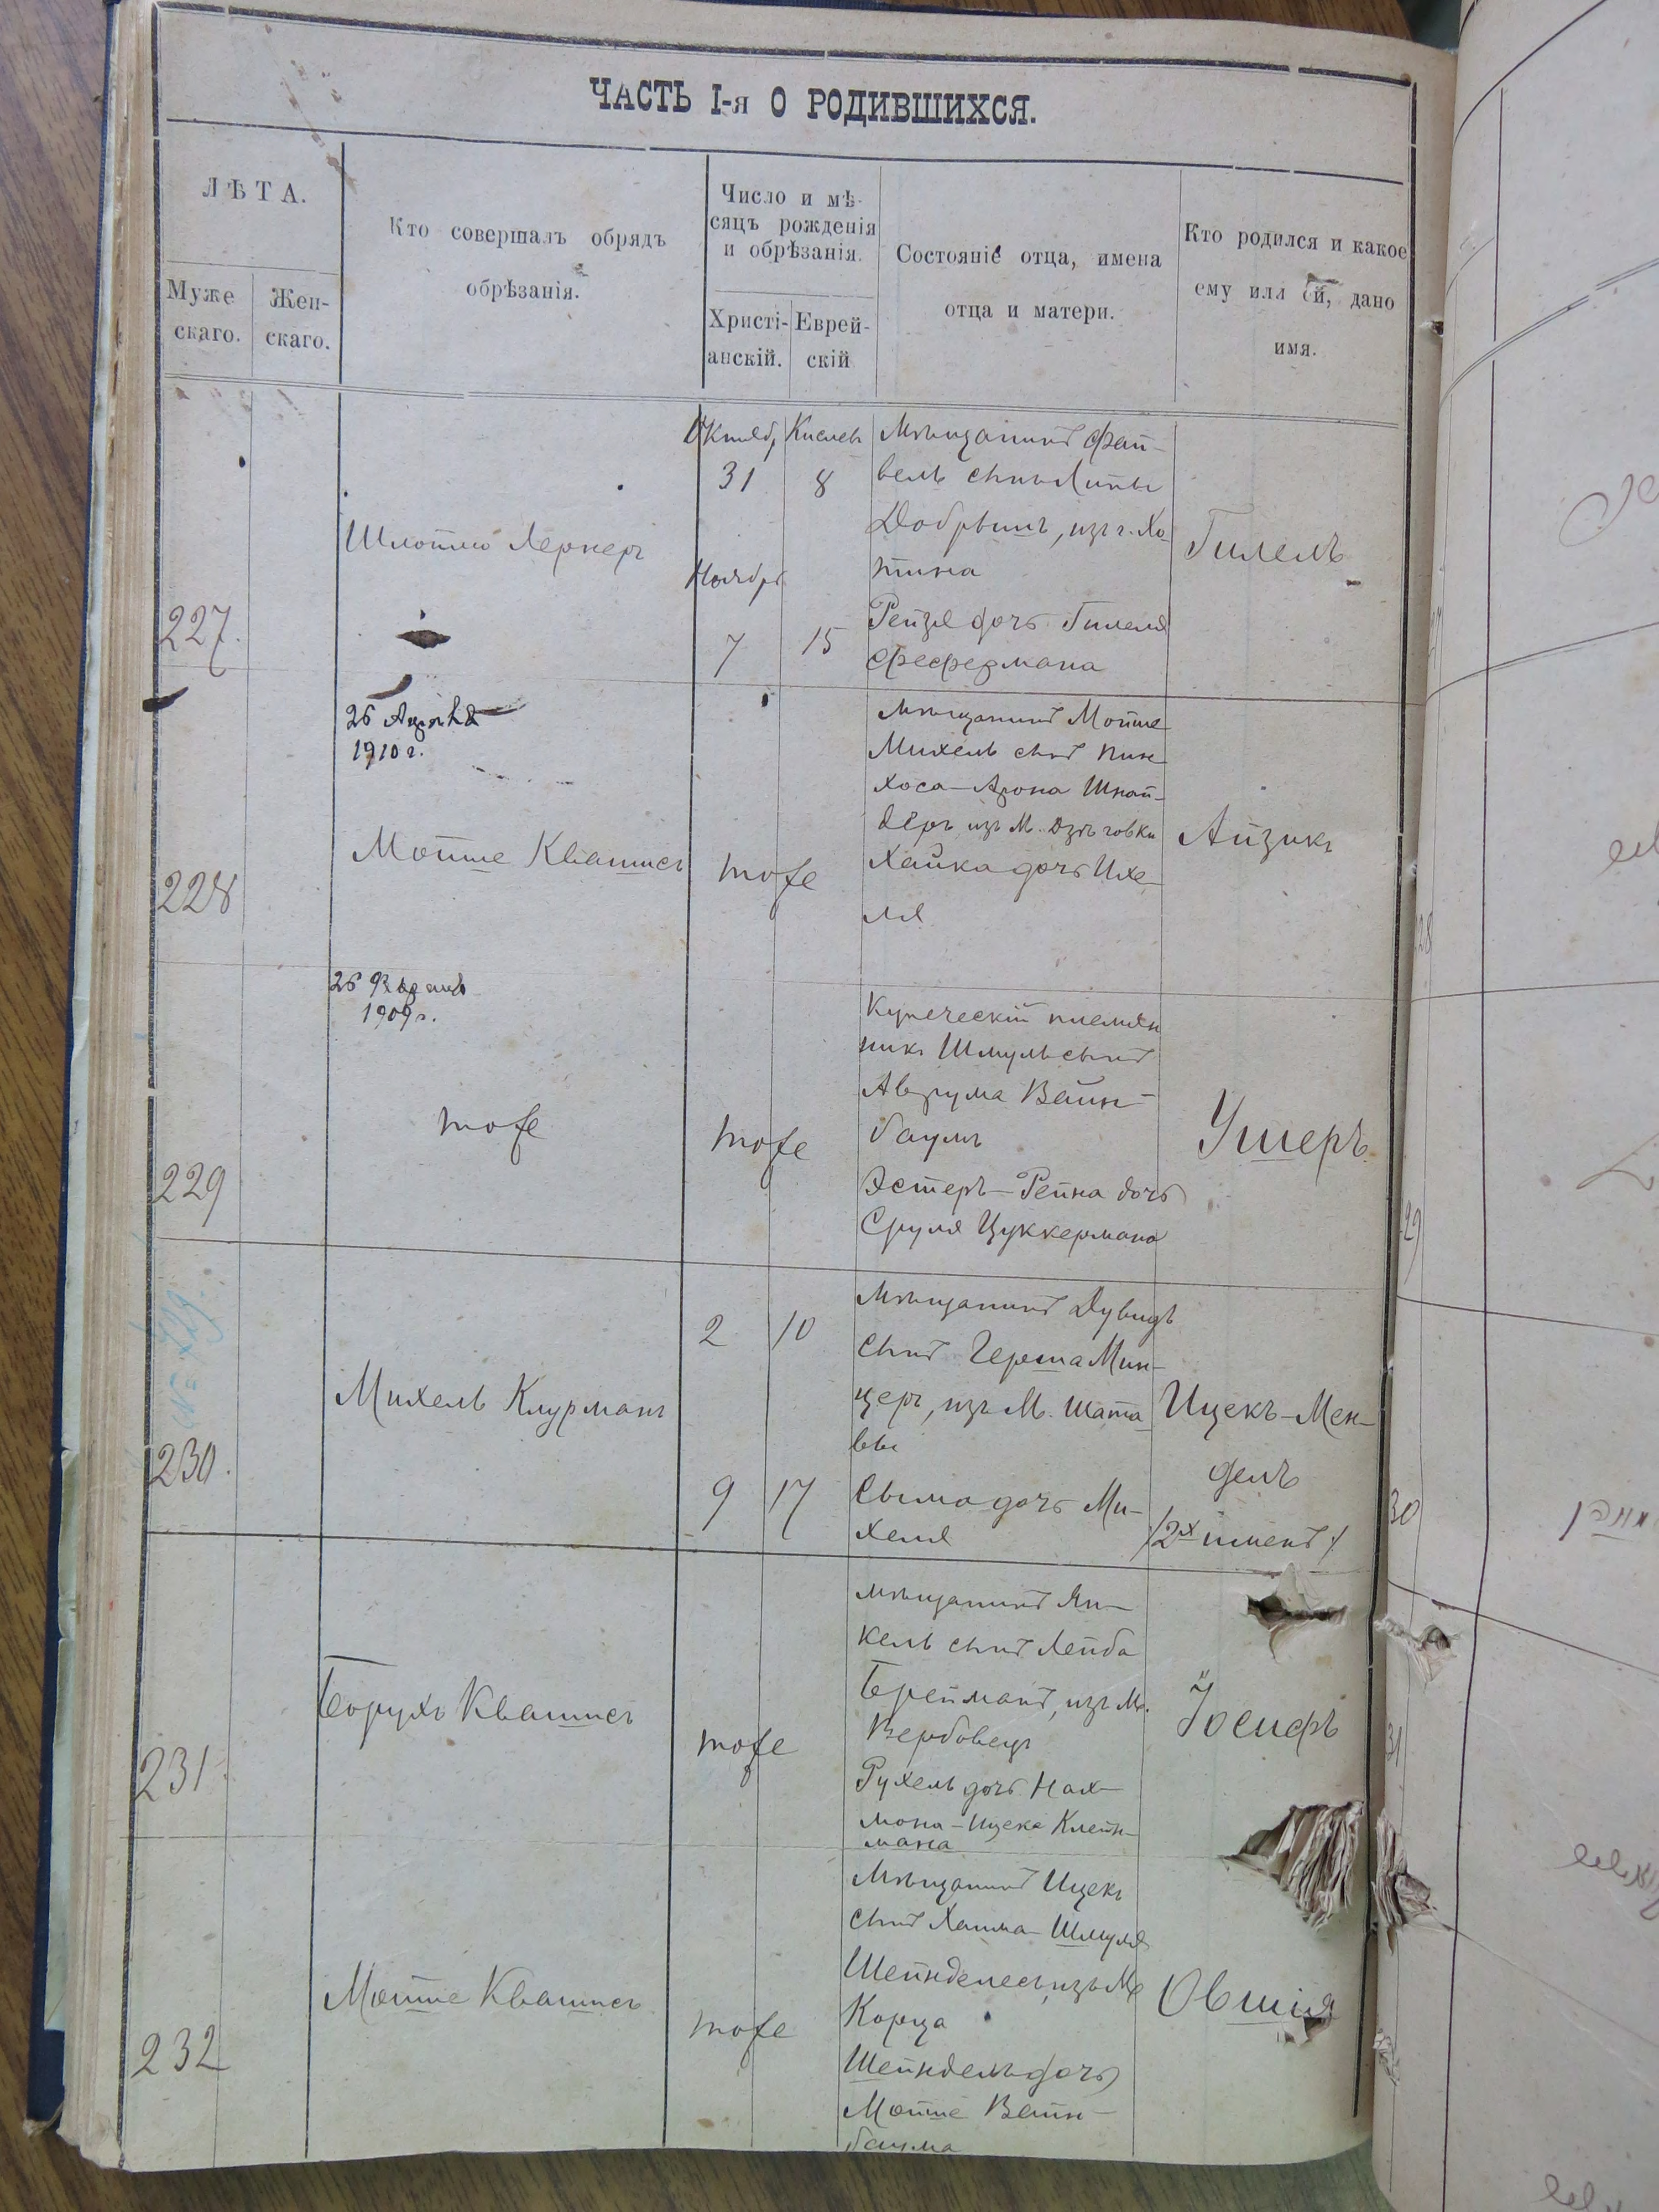 ЧАСТЬ I-я О РОДИВШИХСЯ.
ЛѢТА.
Муже
скаго.
Жен-
скаго.
Кто совершалъ обрядъ
обрѣзанія.
Число и мѣ-
сяцъ рожденія
и обрѣзанія.
Христі-
анскій.
Еврей-
скій
Состояніе отца, имена
отца и матери.
Кто родился и какое
ему или ей, дано
имя.
227.
Шлойме Лернеръ
Октяб,
31
Ноябрь
7
Кислевъ
8
15
Мѣщанинъ Фай-
вель сынъ Липы
Добрышъ, изъ г. Хо-
тина
Рейзя дочь Гилеля
Гилель
228
26 Апрѣля
1910 г.
Мойше Квашисъ
тоже
Мѣщанинъ Мойше
Михель сынъ Пин-
хоса-Арона Шнай-
деръ изъ м. Дзыговки
Хайка дочь Ихе-
ля
Айзикъ
229
26 Февраля
1909 г.
тоже
тоже
Купеческій племян
никъ Шмуль сынъ
Аврума Вайн-
баумъ
Эстеръ-Рейна дочь
Сруля Цуккермана
Ушеръ
230.
Михель Клурманъ
2
9
10
17
Мѣщанинъ Дувидъ
сынъ Герша Мин-
церъ, изъ м. Шата
вы
Сыма дочь Ми-
хеля
Ицекъ-Мен-
дель
/2х именъ/
231.
Борухъ Квашисъ
тоже
Мѣщанинъ Ян-
кель сынъ Лейба
Брейманъ, изъ м.
Вербовецъ
Рухель дочь Нах-
мона-Ицека Клейн-
мана
Іосифъ
232
Мойше Квашисъ
тоже
Мѣщанинъ Ицекъ
сынъ Хаима-Шмуля
Шейнделесъ, изъ м
Корца
Шейндель дочь
Мойше Вайн-
баума
Овшія